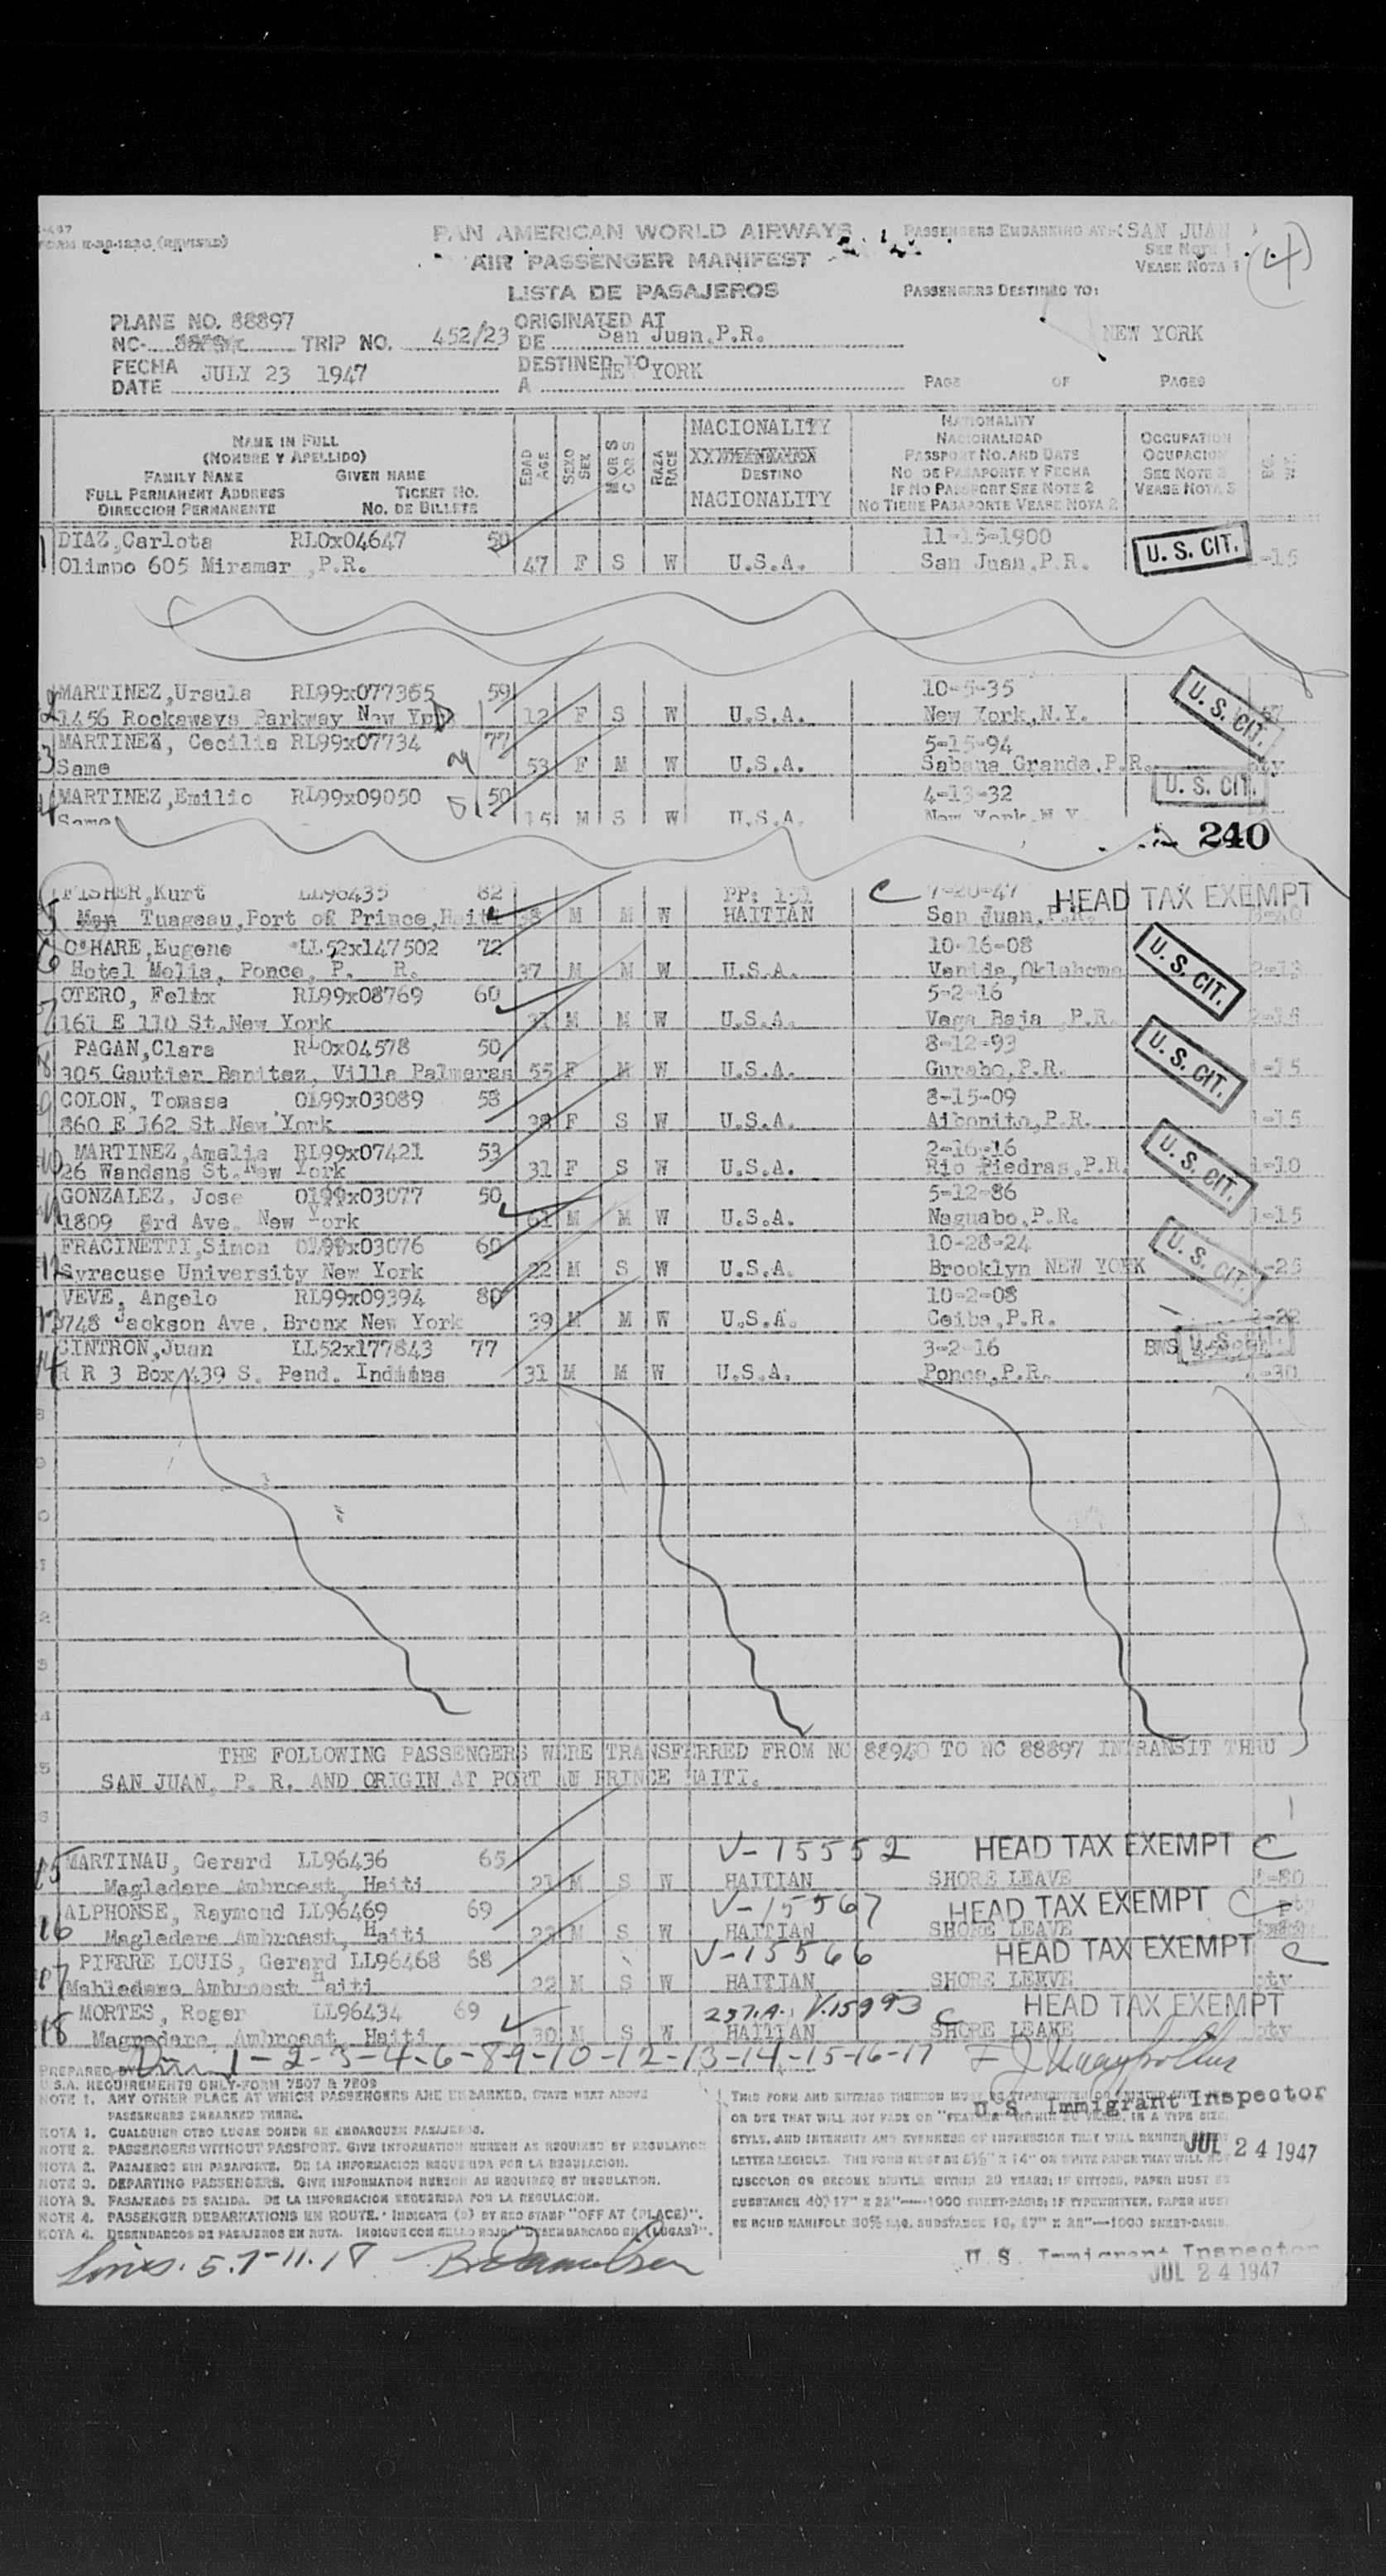 FORM E-29-1220 (REVISED)
PAN AMERICAN WORLD AIRWAYS
AIR PASSENGER MANIFEST
LISTA DE PASAJEROS
PASSENGERS EMBARKING AT: (SAN JUAN )
SEE NOTE 1
VEASE NOTA 1
(4)
PASSENGERS DESTINED TO:
NEW YORK
PLANE NO. 88897
NC- TRIP NO. 452/23
ORIGINATED AT
DE San Juan, P.R.
FECHA
DATE JULY 23 1947
DESTINED TO
A NEW YORK
PAGE OF PAGES
NAME IN FULL
(NOMBRE Y APELLIDO)
FAMILY NAME GIVEN NAME
FULL PERMANENT ADDRESS TICKET NO.
DIRECCION PERMANENTE NO. DE BILLETE
EDAD AGE
SEXO SEX
M OR S
C OR S
RAZA RACE
NACIONALITY
DESTINO
NACIONALITY
NATIONALITY
NACIONALIDAD
PASSPORT NO. AND DATE
NO. DE PASAPORTE Y FECHA
IF NO PASSPORT SEE NOTE 2
NO TIENE PASAPORTE VEASE NOTA 2
OCCUPATION
OCUPACION
SEE NOTE 3
VEASE NOTA 3
1 DIAZ,Carlota RL0x04647 50 11-15-1900 U. S. CIT.
Olimpo 605 Miramar ,P.R. 47 F S W U.S.A. San Juan,P.R. -15
2 MARTINEZ,Ursula RL99x077365 59 10-5-35 U. S. CIT.
1456 Rockaways Parkway New York 12 F S W U.S.A. New York,N.Y.
3 MARTINEZ, Cecilia RL99x07734 77 5-15-94
Same 53 F M W U.S.A. Sabana Grande,P.R. U. S. CIT.
4 MARTINEZ,Emilio RL99x09050 50 4-13-32
Same 15 M S W U.S.A. New York,N.Y.
240
5 FISHER,Kurt LL96435 82 PP: 151 C 7-20-47 HEAD TAX EXEMPT
Tuageau,Port of Prince,Haiti 38 M M W HAITIAN San Juan,P.R.
6 O'HARE,Eugene LL52x147502 72 10-16-08 U. S. CIT.
Hotel Melia, Ponce, P. R. 37 M M W U.S.A. Oklahoma
7 OTERO, Felix RL99x08769 60 5-2-16
161 E 110 St.New York 31 M M W U.S.A. Vega Baja ,P.R.
8 PAGAN,Clara RL0x04578 50 8-12-93 U. S. CIT.
305 Gautier Benitez, Villa Palmeras 55 F M W U.S.A. Gurabo,P.R. 1-15
9 COLON, Tomasa 0L99x03089 58 8-15-09
860 E 162 St.New York 38 F S W U.S.A. Aibonito,P.R. 1-15
10 MARTINEZ,Amalia RL99x07421 53 2-16-16 U. S. CIT.
26 Wandans St.New York 31 F S W U.S.A. Rio Piedras,P.R. 1-10
11 GONZALEZ, Jose 0L99x03077 50 5-12-86
1809 3rd Ave. New York 61 M M W U.S.A. Naguabo,P.R. 1-15
12 FRACINETTI,Simon 0L99x03076 60 10-28-24 U. S. CIT.
Syracuse University New York 22 M S W U.S.A. Brooklyn NEW YORK -25
13 VEVE, Angelo RL99x09394 80 10-2-08
748 Jackson Ave. Bronx New York 39 M M W U.S.A. Ceiba,P.R. 2-22
14 CINTRON,Juan LL52x177843 77 3-2-16 U. S. CIT.
R R 3 Box 439 S. Pend. Indiana 31 M M W U.S.A. Ponce,P.R. -30
THE FOLLOWING PASSENGERS WERE TRANSFERRED FROM NC 88940 TO NC 88897 INTRANSIT THRU
SAN JUAN, P. R. AND ORIGIN AT PORT AU PRINCE HAITI.
15 MARTINAU, Gerard LL96436 65 V-15552 HEAD TAX EXEMPT C
Magledere Ambroast, Haiti 21 M S W HAITIAN SHORE LEAVE
16 ALPHONSE, Raymond LL96469 69 V-15567 HEAD TAX EXEMPT C
Magledere Ambroast, Haiti 23 M S W HAITIAN SHORE LEAVE
17 PIERRE LOUIS, Gerard LL96468 68 V-15566 HEAD TAX EXEMPT C
Mahledere Ambroest Haiti 22 M S W HAITIAN SHORE LEAVE qty
18 MORTES, Roger LL96434 69 V.15993 C HEAD TAX EXEMPT
Magredare, Ambroast, Haiti 30 M S W HAITIAN SHORE LEAKE qty
1-2-3-4-6-8-9-10-12-13-14-15-16-17
PREPARED BY
U.S.A. REQUIREMENTS ONLY-FORM 7507 & 7509
U. S. Immigrant Inspector
JUL 24 1947
NOTE 1. ANY OTHER PLACE AT WHICH PASSENGERS ARE EMBARKED, STATE NEXT ABOVE
PASSENGERS EMBARKED THERE.
NOTA 1. CUALQUIER OTRO LUGAR DONDE SE EMBARQUEN PASAJEROS.
NOTE 2. PASSENGERS WITHOUT PASSPORT. GIVE INFORMATION HEREON AS REQUIRED BY REGULATION
NOTA 2. PASAJEROS SIN PASAPORTE. DE LA INFORMACION REQUERIDA POR LA REGULACION.
NOTE 3. DEPARTING PASSENGERS. GIVE INFORMATION HEREON AS REQUIRED BY REGULATION.
NOTA 3. PASAJEROS DE SALIDA. DE LA INFORMACION REQUERIDA POR LA REGULACION.
NOTE 4. PASSENGER DEBARKATIONS EN ROUTE. INDICATE (D) BY RED STAMP "OFF AT (PLACE)".
NOTA 4. DESEMBARCOS DE PASAJEROS EN RUTA. INDIQUE CON SELLO ROJO "DESEMBARCADO EN (LUGAR)".
THIS FORM AND ENTRIES THEREON MUST BE TYPEWRITTEN OR
OR DYE THAT WILL NOT FADE OR "FEATHER" WITHIN 20 YEARS, IN A TYPE SIZE,
STYLE, AND INTENSITY AND EVENNESS OF IMPRESSION THAT WILL RENDER EVERY
LETTER LEGIBLE. THE FORM MUST BE 8½" X 14" ON WHITE PAPER THAT WILL NOT
DISCOLOR OR BECOME BRITTLE WITHIN 20 YEARS; IF DITTOED, PAPER MUST BE
SUBSTANCE 40, 17" X 22"—1000 SHEET-BASIS; IF TYPEWRITTEN, PAPER MUST
BE BOND MANIFOLD 30% RAG, SUBSTANCE 18, 17" X 22"—1000 SHEET-BASIS.
Lines. 5.7-11.18
U. S. Immigrant Inspector
JUL 24 1947